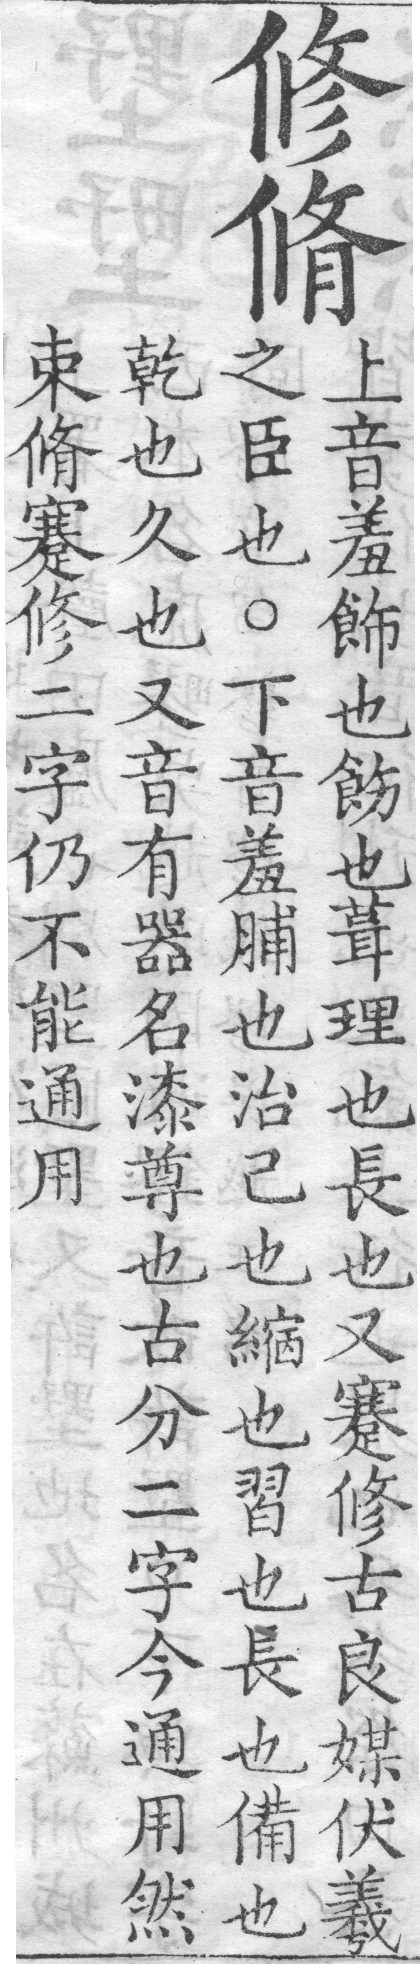 修脩
上音羞飾也飭也葺理也長也又蹇修古良媒伏羲
之臣也○下音羞脯也治己也縮也習也長也備也
乾也久也又音有器名漆尊也古分二字今通用然
束脩蹇修二字仍不能通用